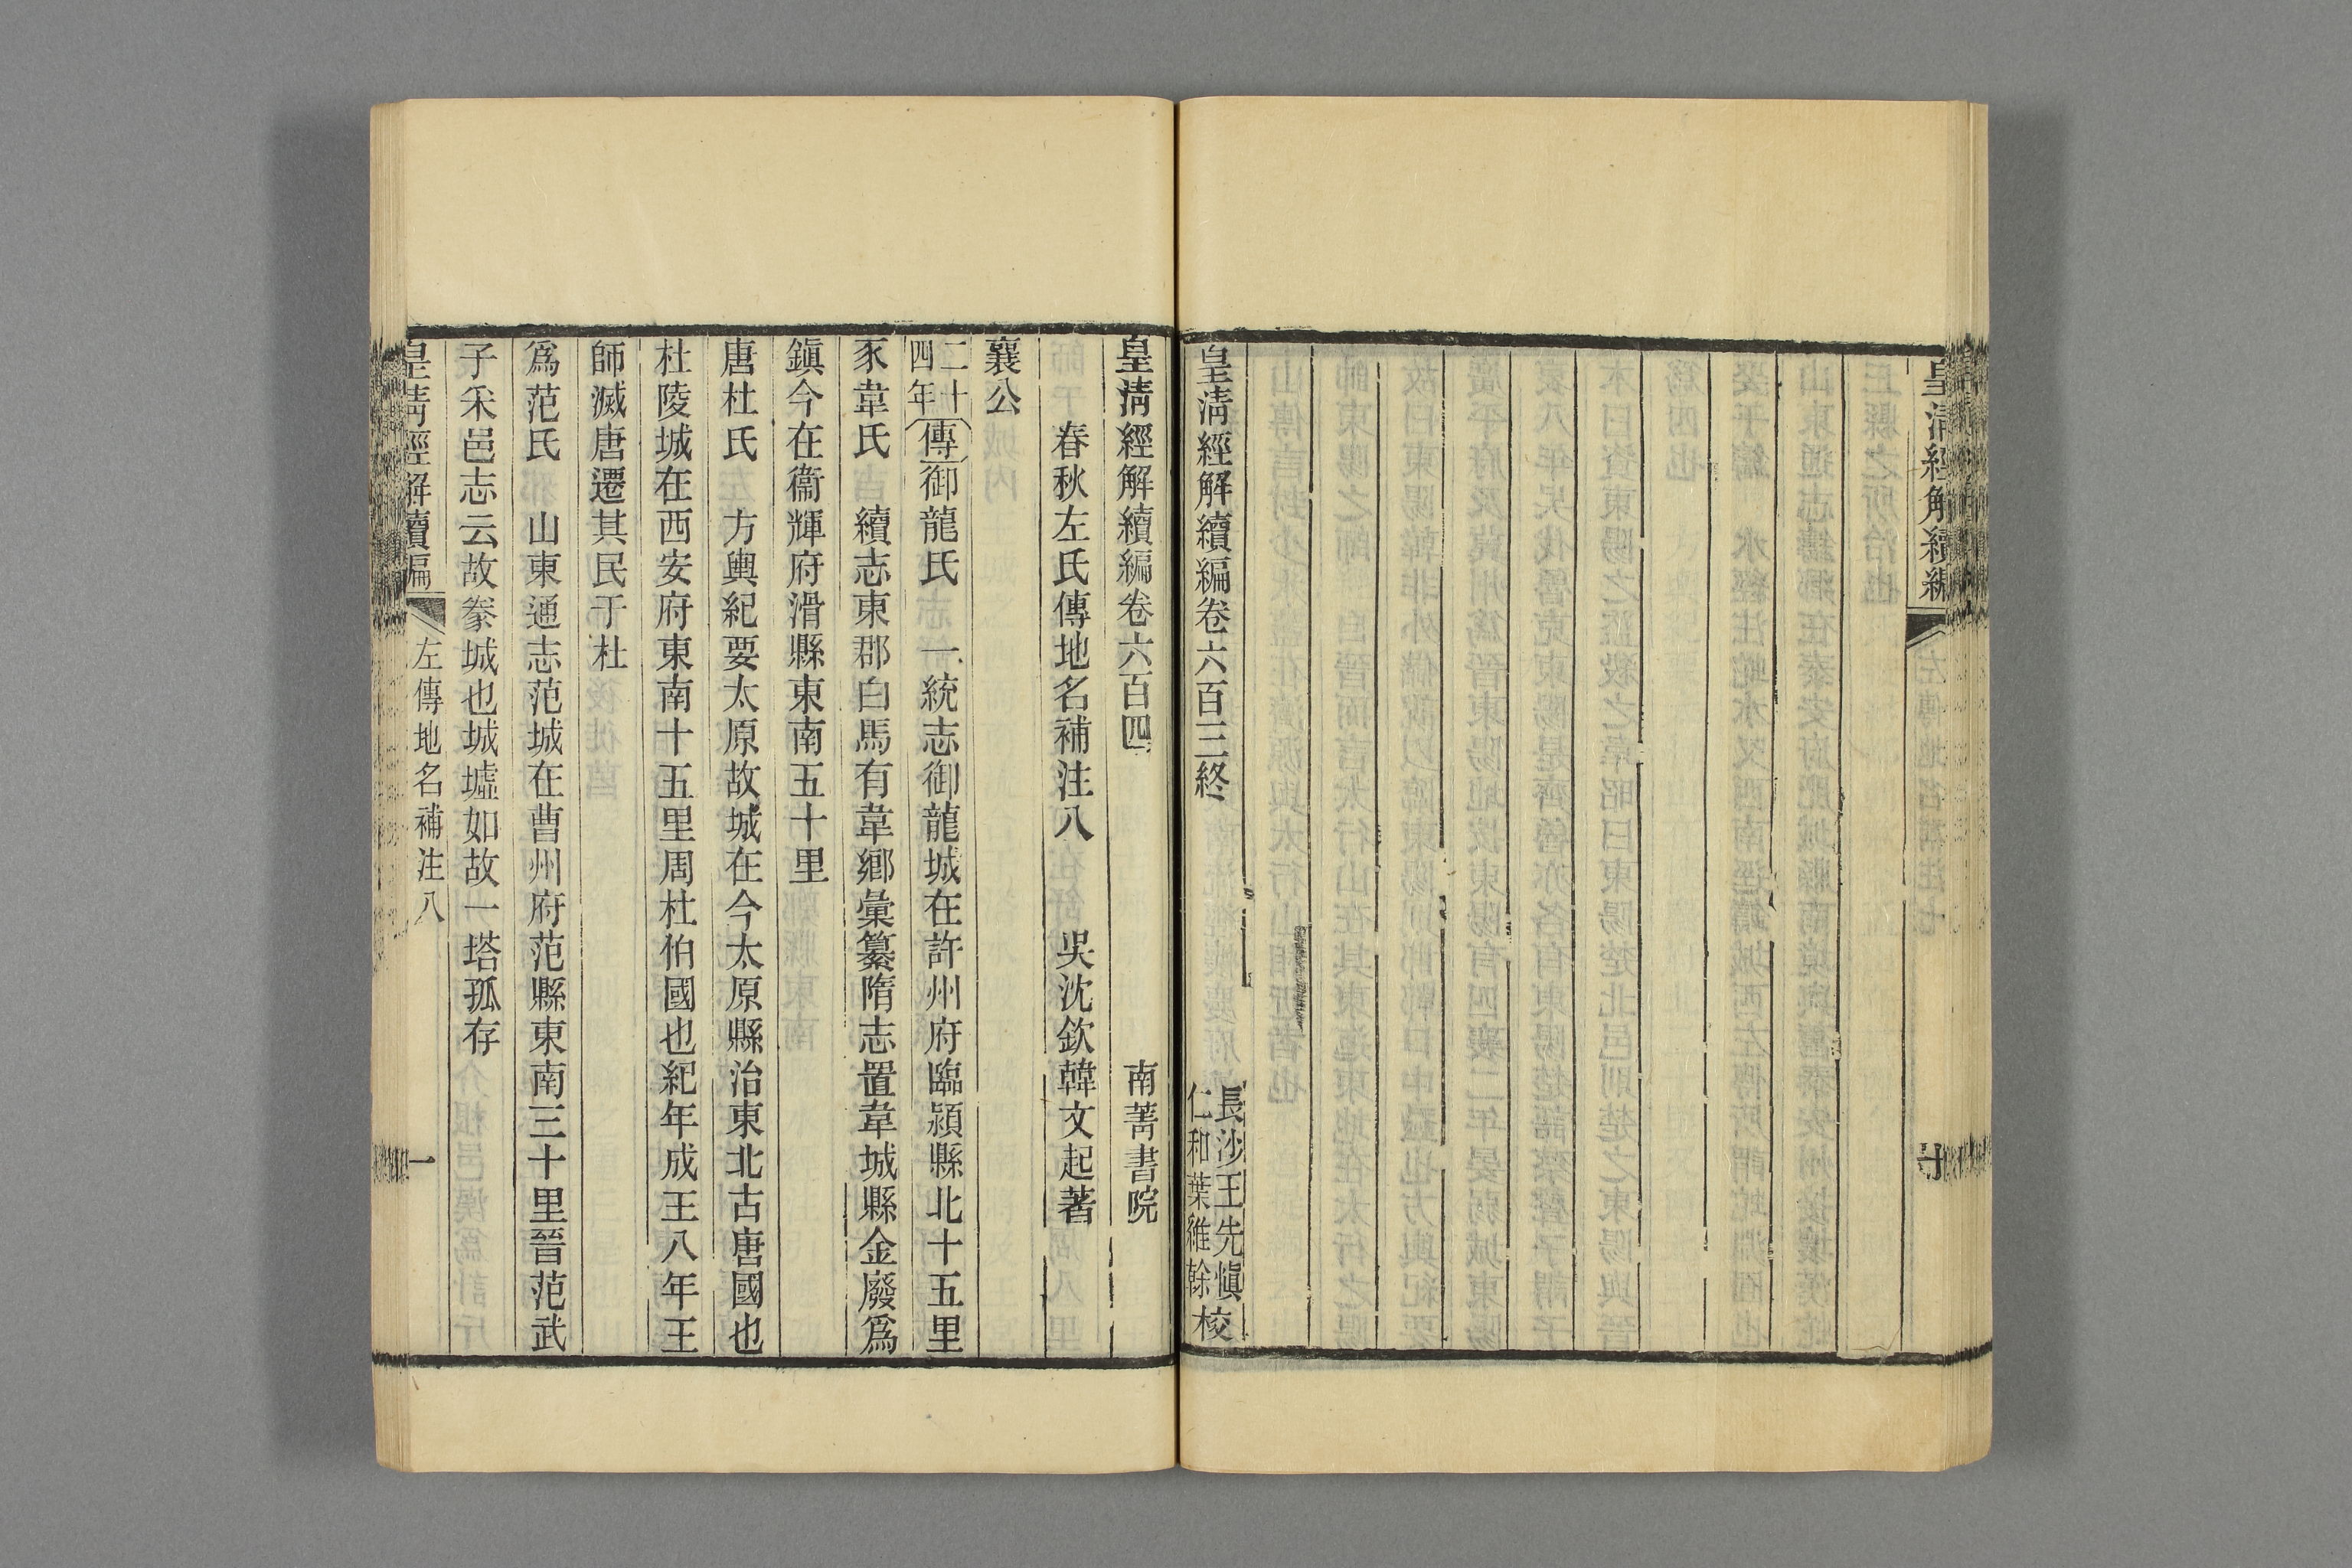 皇清經解續編
左傳地名補注七
皇清經解續編卷六百三終
長沙王先愼
仁和葉維榦
校
皇清經解續編卷六百四
南菁書院
春秋左氏傳地名補注八
吳沈欽韓文起著
襄公
二十四年傳御龍氏　一統志御龍城在許州府臨潁縣北十五里
豕韋氏　續志東郡白馬有韋鄉彙纂隋志置韋城縣金廢爲
鎭今在衞輝府滑縣東南五十里
唐杜氏　方輿紀要太原故城在今太原縣治東北古唐國也
杜陵城在西安府東南十五里周杜伯國也紀年成王八年王
師滅唐遷其民于杜
爲范氏　山東通志范城在曹州府范縣東南三十里晉范武
子釆邑志云故豢城也城墟如故一塔孤存
皇清經解續編
左傳地名補注八
一